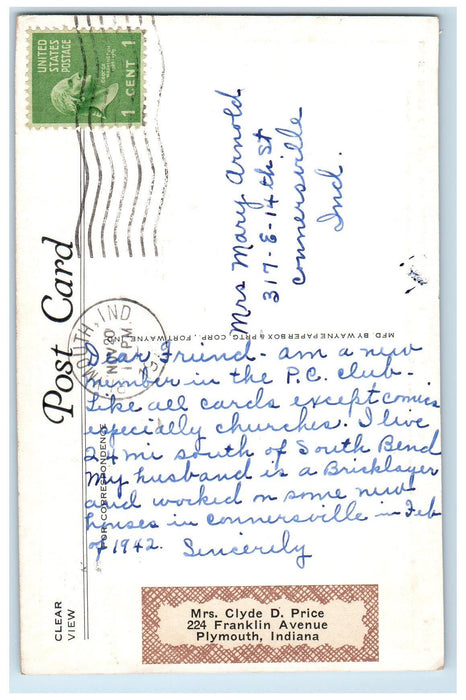 UNITED
STATES
POSTAGE
GEORGE
WASHINGTON
1 CENT 1
Post Card
MOUTH, IND.
NOV 20
PM
Mrs Mary Arnold
317-E-14th St
Connersville
Ind.
MFD. BY WAYNE PAPER BOX & PRTG. CORP., FORT WAYNE, IND.
FOR CORRESPONDENCE
Dear Friend- am a new
member in the P.C. club-
Like all cards except comics
especially churches. I live
24 mi south of South Bend
My husband is a Bricklayer
and worked on some new
houses in connersville in Feb
of 1942. Sincerily
CLEAR
VIEW
Mrs. Clyde D. Price
224 Franklin Avenue
Plymouth, Indiana